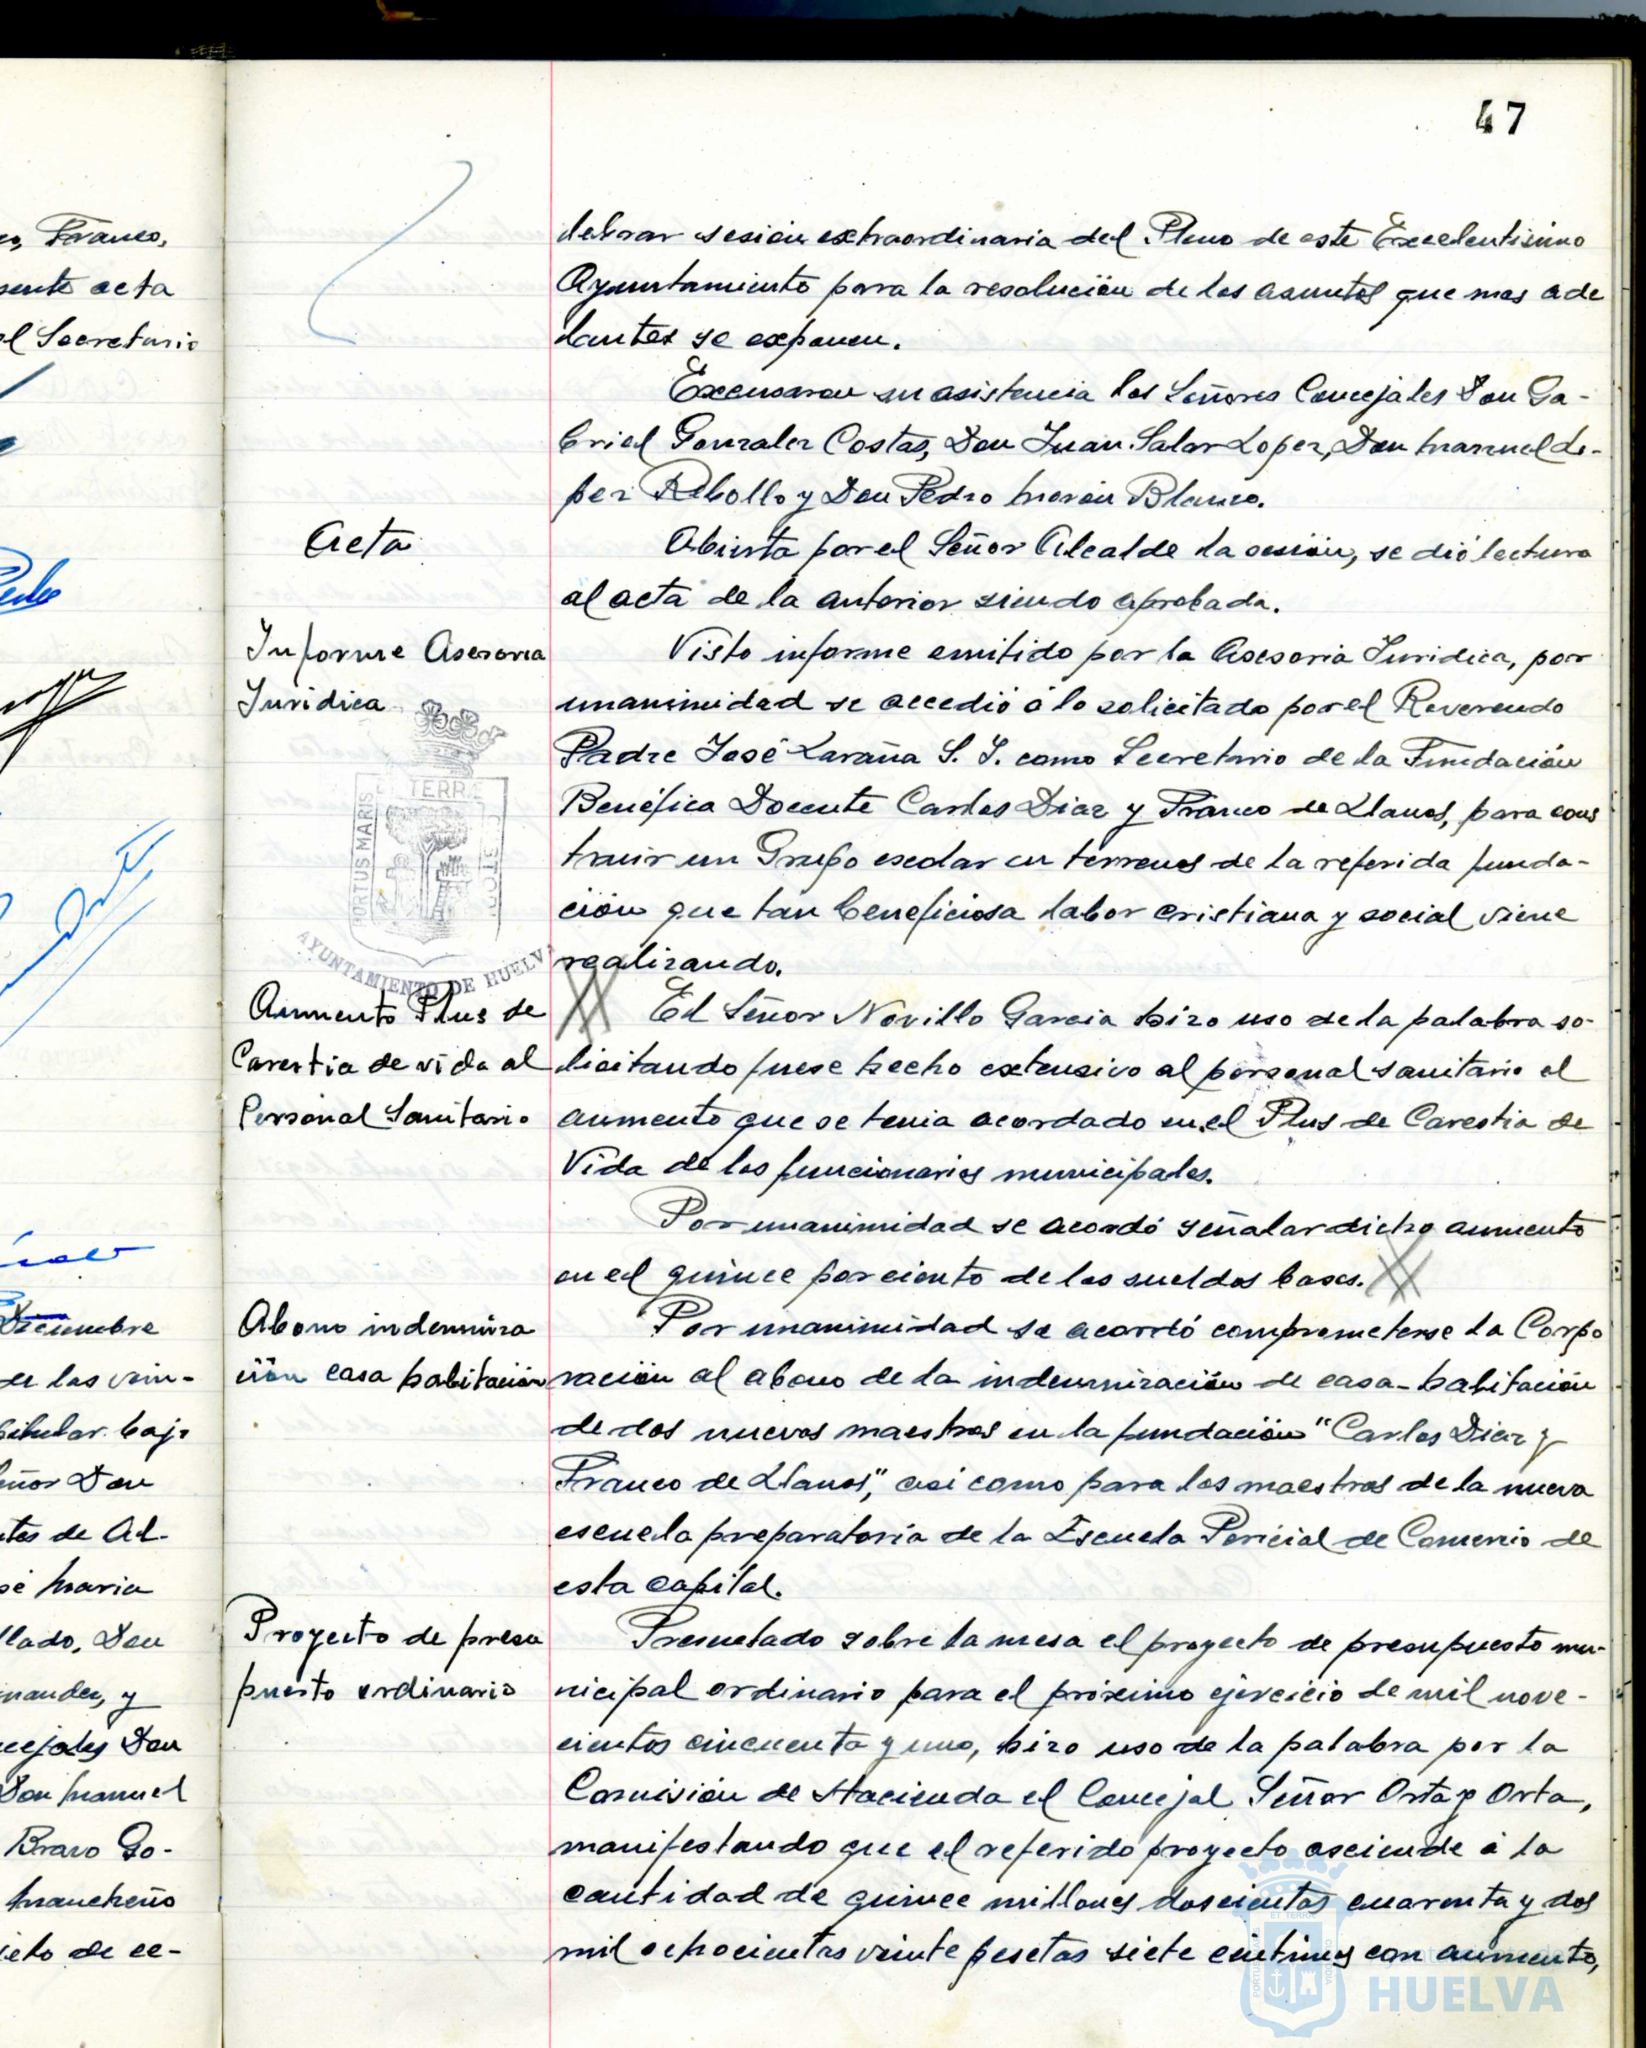 47
Franco,
sente acta
el Secretario
Diciembre
de las vein-
bitular bajo
eñor Don
ntes de Al-
sé Maria
llado, Don
nandez, y
ncejales Don
Don Manuel
Bravo Go-
Mancheño
jeto de ce-
lebrar sesión extraordinaria del Pleno de este Excelentisimo
Ayuntamiento para la resolución de los asuntos que mas ade
lantes se exponen.
Excusaron su asistencia los Señores Concejales Don Ga-
briel Gonzalez Costas, Don Juan Salar Lopez, Don Manuel Lo-
pez Rebollo y Don Pedro Morón Blanco.
Acta
Abierta por el Señor Alcalde la sesión, se dió lectura
al acta de la anterior siendo aprobada.
Informe Asesoria
Juridica
Visto informe emitido por la Asesoria Juridica, por
unanimidad se accedió a lo solicitado por el Reverendo
Padre José Laraña S. J. como Secretario de la Fundación
Benéfica Docente Carlos Diaz y Franco de Llanos, para cons
truir un Grupo escolar en terrenos de la referida funda-
ción que tan beneficiosa labor cristiana y social viene
realizando.
PORTUS MARIS
ET TERRE
AYUNTAMIENTO DE HUELVA
Aumento Plus de
Carestia de vida al
Personal Sanitario
El Señor Novillo Garcia hizo uso de la palabra so-
licitando fuese hecho extensivo al personal sanitario el
aumento que se tenia acordado en el Plus de Carestia de
Vida de los funcionarios municipales.
Por unanimidad se acordó señalar dicho aumento
en el quince por ciento de los sueldos bases.
Abono indemniza
ción casa habitación
Por unanimidad se acordó comprometerse la Corpo
ración al abono de la indemnización de casa-habitación
de dos nuevos maestros en la fundación "Carlos Diaz y
Franco de Llanos", asi como para los maestros de la nueva
escuela preparatoria de la Escuela Pericial de Comercio de
esta capital.
Proyecto de presu
puesto ordinario
Presentado sobre la mesa el proyecto de presupuesto mu-
nicipal ordinario para el próximo ejercicio de mil nove-
cientos cincuenta y uno, hizo uso de la palabra por la
Comisión de Hacienda el Concejal Señor Orta y Orta,
manifestando que el referido proyecto asciende á la
cantidad de quince millones doscientas cuarenta y dos
mil ochocientas veinte pesetas siete centimos con aumento,
HUELVA